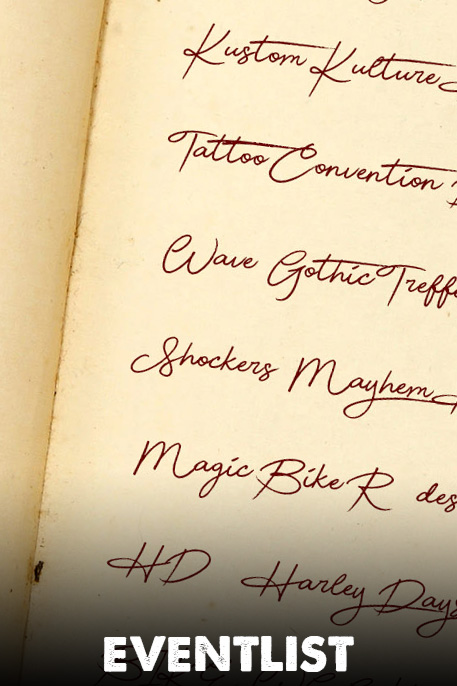 Kustom Kulture
Tattoo Convention
Wave Gothic Treffe
Shockers Mayhem
Magic Bike R des
HD Harley Days
EVENTLIST